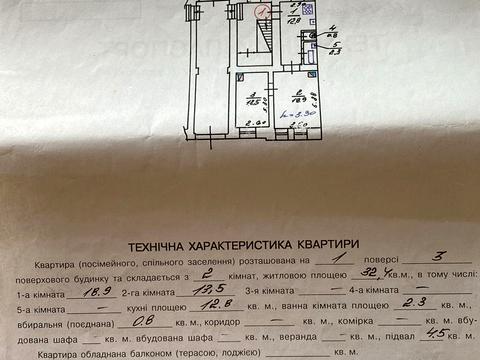 1
1
12.8
4
0.8
5
2.3
3
13.5
2
18.9
h=3.30
2.60
2.60
ТЕХНІЧНА ХАРАКТЕРИСТИКА КВАРТИРИ
Квартира (посімейного, спільного заселення) розташована на 1 поверсі 3
поверхового будинку та складається з 2 кімнат, житловою площею 32,4 кв.м., в тому числі:
1-а кімната 18.9 2-га кімната 13,5 3-я кімната — 4-а кімната —
5-а кімната — кухні площею 12.8 кв. м., ванна кімната площею 2.3 кв. м.,
вбиральня (поєднана) 0.8 кв. м., коридор — кв. м., комірка — кв. м. вбу-
дована шафа — кв. м. вбудована шафа — кв. м., веранда — кв. м., підвал 4.5 кв. м.
Квартира обладнана балконом (терасою, лоджією) — кв. м.